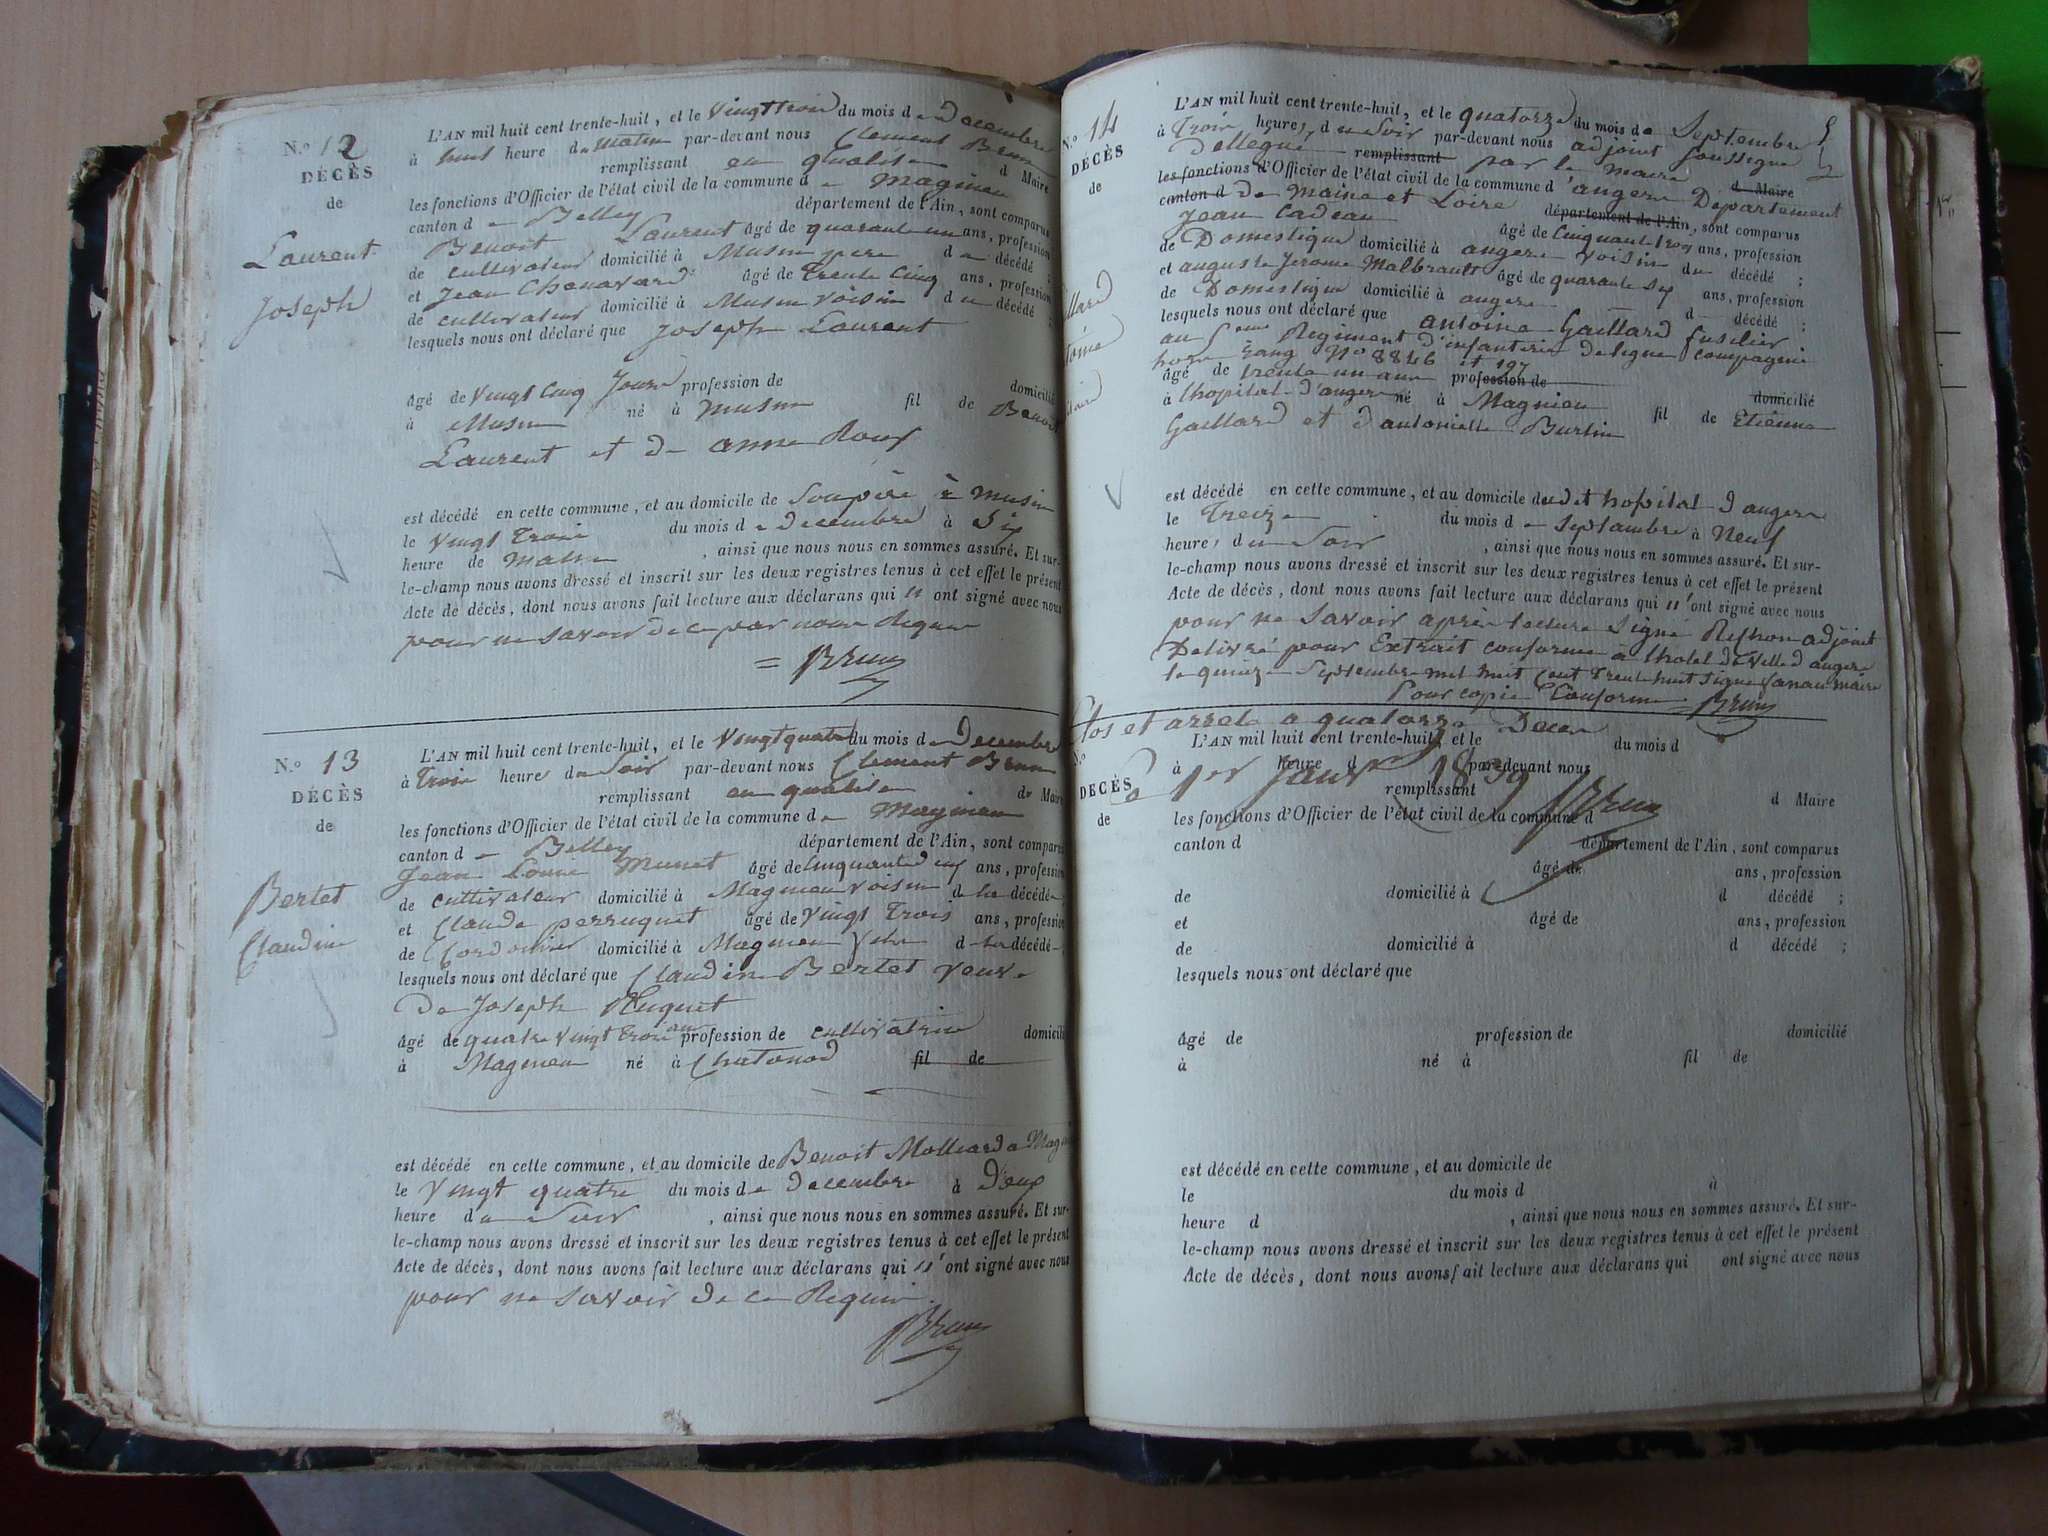 N.o 12
DÉCÈS
de
Laurent
Joseph
L'AN mil huit cent trente-huit, et le Vingt trois du mois de Decembre
à huit heure du matin par-devant nous Clement Brun
remplissant en qualité d Maire
les fonctions d'Officier de l'état civil de la commune de Magnieu
canton de Belley département de l'Ain, sont comparus
Benoit Laurent âgé de quarante un ans, profession
de cultivateur domicilié à Musin pere du décédé ;
et Jean Chenavard âgé de Trente Cinq ans, profession
de cultivateur domicilié à Musin Voisin du décédé ;
lesquels nous ont déclaré que Joseph Laurent
âgé de Vingt Cinq Jours profession de domicilié
à Musin né à Musin fil de Benoit
Laurent et de anne Roux
est décédé en cette commune, et au domicile de Son père à Musin
le Vingt Trois du mois de decembre à Six
heure de Matin , ainsi que nous nous en sommes assuré. Et sur-
le-champ nous avons dressé et inscrit sur les deux registres tenus à cet effet le présent
Acte de décès, dont nous avons fait lecture aux déclarans qui n ont signé avec nous
pour ne savoir de ce par nous Requis
= Brun
N.o 13
DÉCÈS
de
Bertet
Claudine
L'AN mil huit cent trente-huit, et le Vingt quatre du mois de Decembre
à Trois heure du Soir par-devant nous Clement Brun
remplissant en qualité de Maire
les fonctions d'Officier de l'état civil de la commune de Magnieu
canton de Belley département de l'Ain, sont comparus
Jean Louis Munet âgé de Cinquante deux ans, profession
de cultivateur domicilié à Magnieu voisin de la décédée ;
et Claude perruquet âgé de Vingt Trois ans, profession
de Cordonnier domicilié à Magnieu d la décédé
lesquels nous ont déclaré que Claudine Bertet veuve
de Joseph Huquet
âgé de quatre Vingt Trois ans profession de cultivatrice domicilié
à Magnieu né à Chatonod fil de
est décédé en cette commune, et au domicile de Benoit Molliard a Mag
le Vingt quatre du mois de decembre à Deux
heure du Soir , ainsi que nous nous en sommes assuré. Et sur-
le-champ nous avons dressé et inscrit sur les deux registres tenus à cet effet le présent
Acte de décès, dont nous avons fait lecture aux déclarans qui n'ont signé avec nous
pour ne savoir de ce Requis
Brun
N.o 14
DÉCÈS
de
L'AN mil huit cent trente-huit, et le quatorze du mois de Septembre
à Trois heure, du Soir par-devant nous adjoint Soussigné
Dellegué remplissant par le maire d Maire
les fonctions d'Officier de l'état civil de la commune d'angers Département
canton d de maine et Loire département de l'Ain, sont comparus
Jean Cadeau âgé de Cinquante trois ans, profession
de Domestique domicilié à angers voisin du décédé ;
et auguste Jerome Malbrault âgé de quarante six ans, profession
de Domestique domicilié à angers d décédé ;
lesquels nous ont déclaré que antoine Gaillard fusilier
au 5eme Regiment d'infanterie de ligne compagnie
hors rang No 8846 et 197
âgé de trente un ans profession de domicilié
à lhopital d'angers né à Magnieu fil de Etienne
Gaillard et d'antoinette Burtin
est décédé en cette commune, et au domicile dudit hopital d'angers
le Treize du mois de Septembre à Neuf
heure, du Soir , ainsi que nous nous en sommes assuré. Et sur-
le-champ nous avons dressé et inscrit sur les deux registres tenus à cet effet le présent
Acte de décès, dont nous avons fait lecture aux déclarans qui n'ont signé avec nous
pour ne Savoir après lecture Signé adjoint
Délivré pour Extrait conforme a lhotel de Ville d angers
le quinze Septembre mil huit Cent Trente huit Signé maire
Pour copie Conforme = Brun
Clos et arreté a quatorze Deces
1er Janv 1839 Brun
DÉCÈS
de
L'AN mil huit cent trente-huit, et le du mois d
à heure d par-devant nous
remplissant d Maire
les fonctions d'Officier de l'état civil de la commune d
canton d département de l'Ain, sont comparus
âgé de ans, profession
de domicilié à d décédé ;
et âgé de ans, profession
de domicilié à d décédé ;
lesquels nous ont déclaré que
âgé de profession de domicilié
à né à fil de
est décédé en cette commune, et au domicile de
le du mois d à
heure d , ainsi que nous nous en sommes assuré. Et sur-
le-champ nous avons dressé et inscrit sur les deux registres tenus à cet effet le présent
Acte de décès, dont nous avons fait lecture aux déclarans qui ont signé avec nous